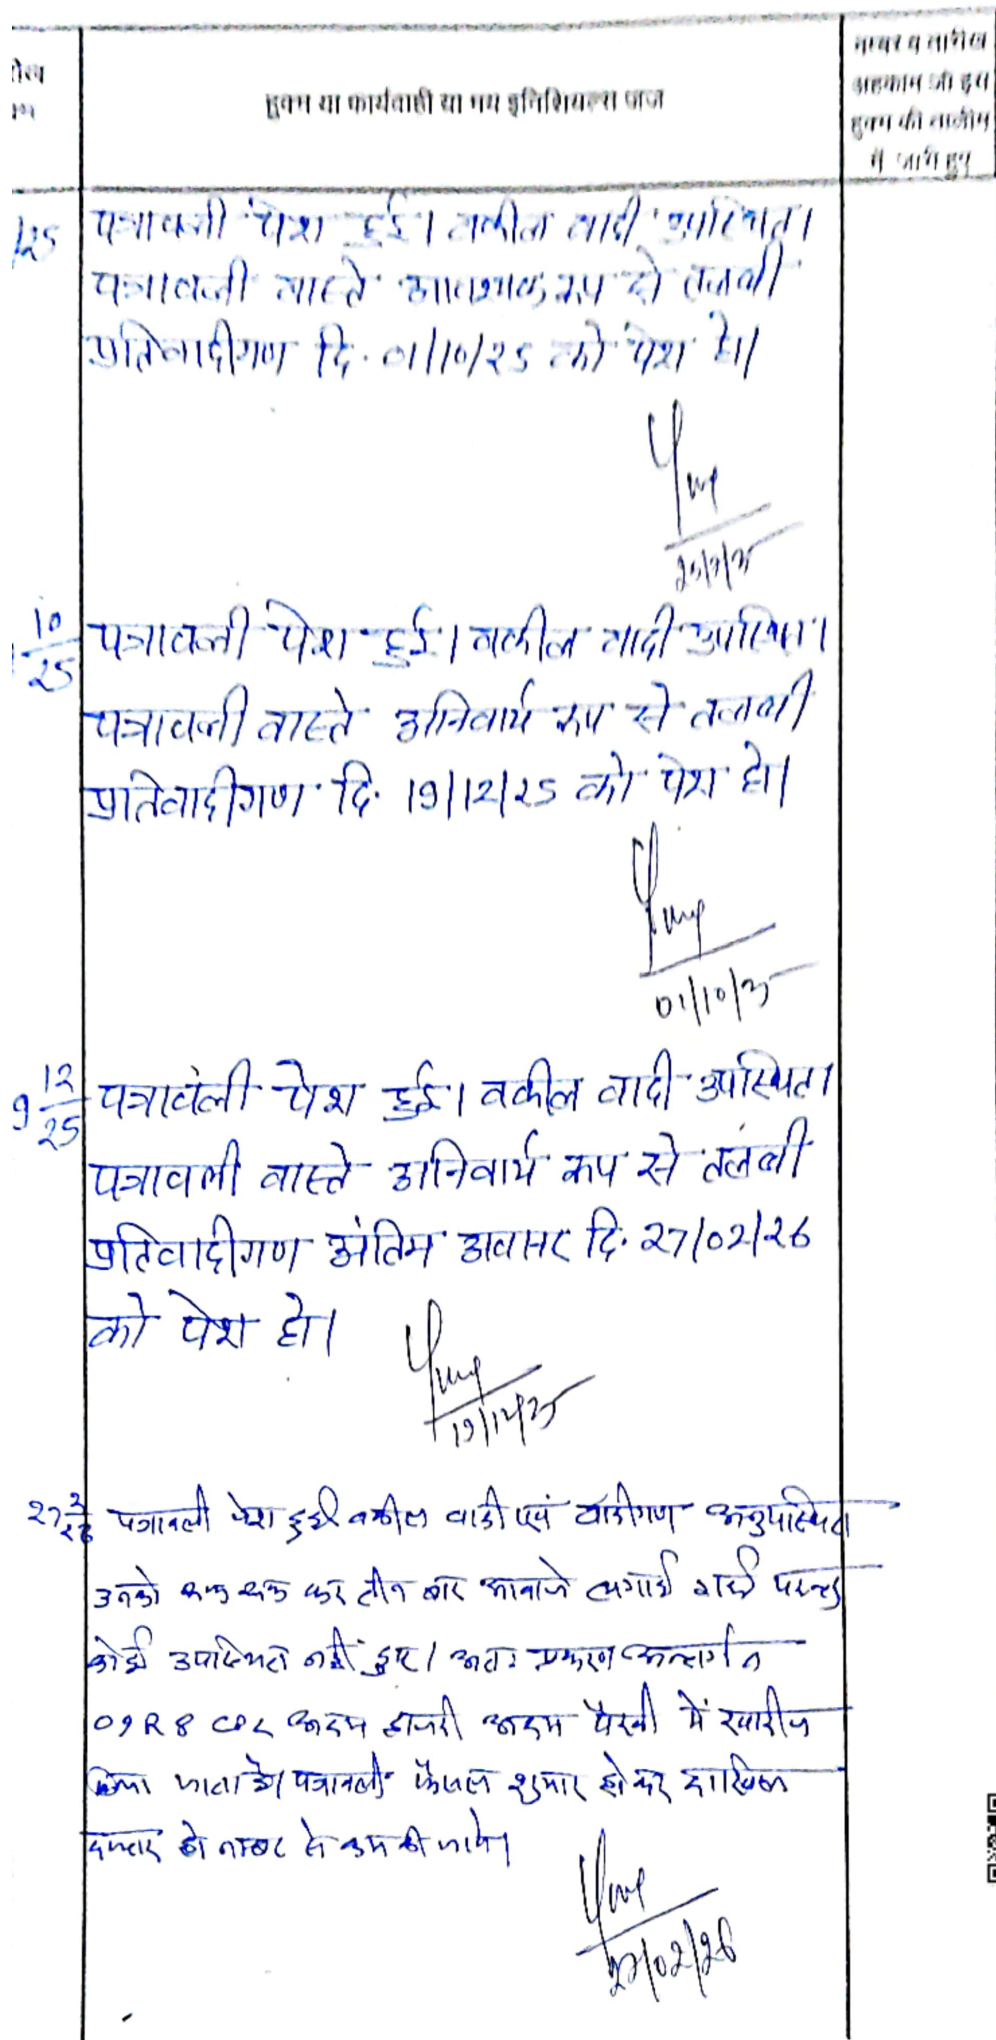 हुक्म या कार्यवाही या मय इनिशियल्स जज
नम्बर व तारीख
अहकाम जो इस
हुक्म की तामील
में जारी हुए
/25 पत्रावली पेश हुई। वकील वादी उपस्थित।
पत्रावली वास्ते आवश्यक रूप से तलबी
प्रतिवादीगण दि. 01/10/25 को पेश हो।
10
25
पत्रावली पेश हुई। वकील वादी उपस्थित।
पत्रावली वास्ते अनिवार्य रूप से तलबी
प्रतिवादीगण दि. 19/12/25 को पेश हो।
01/10/25
9 12
25
पत्रावली पेश हुई। वकील वादी उपस्थित।
पत्रावली वास्ते अनिवार्य रूप से तलबी
प्रतिवादीगण अंतिम अवसर दि. 27/02/26
को पेश हो।
19/12/25
27 2
26
पत्रावली पेश हुई वकील वादी एवं वादीगण अनुपस्थित
उनको रुक रुक कर तीन बार आवाजे लगाई गई परन्तु
कोई उपस्थित नहीं हुए। अतः प्रकरण अन्तर्गत
09 R 8 CPC अदम हाजरी अदम पैरवी में खारीज
किया जाता है। पत्रावली फैसल शुमार होकर दाखिल
दफ्तर हो नम्बर से कम की जावे।
27/02/26